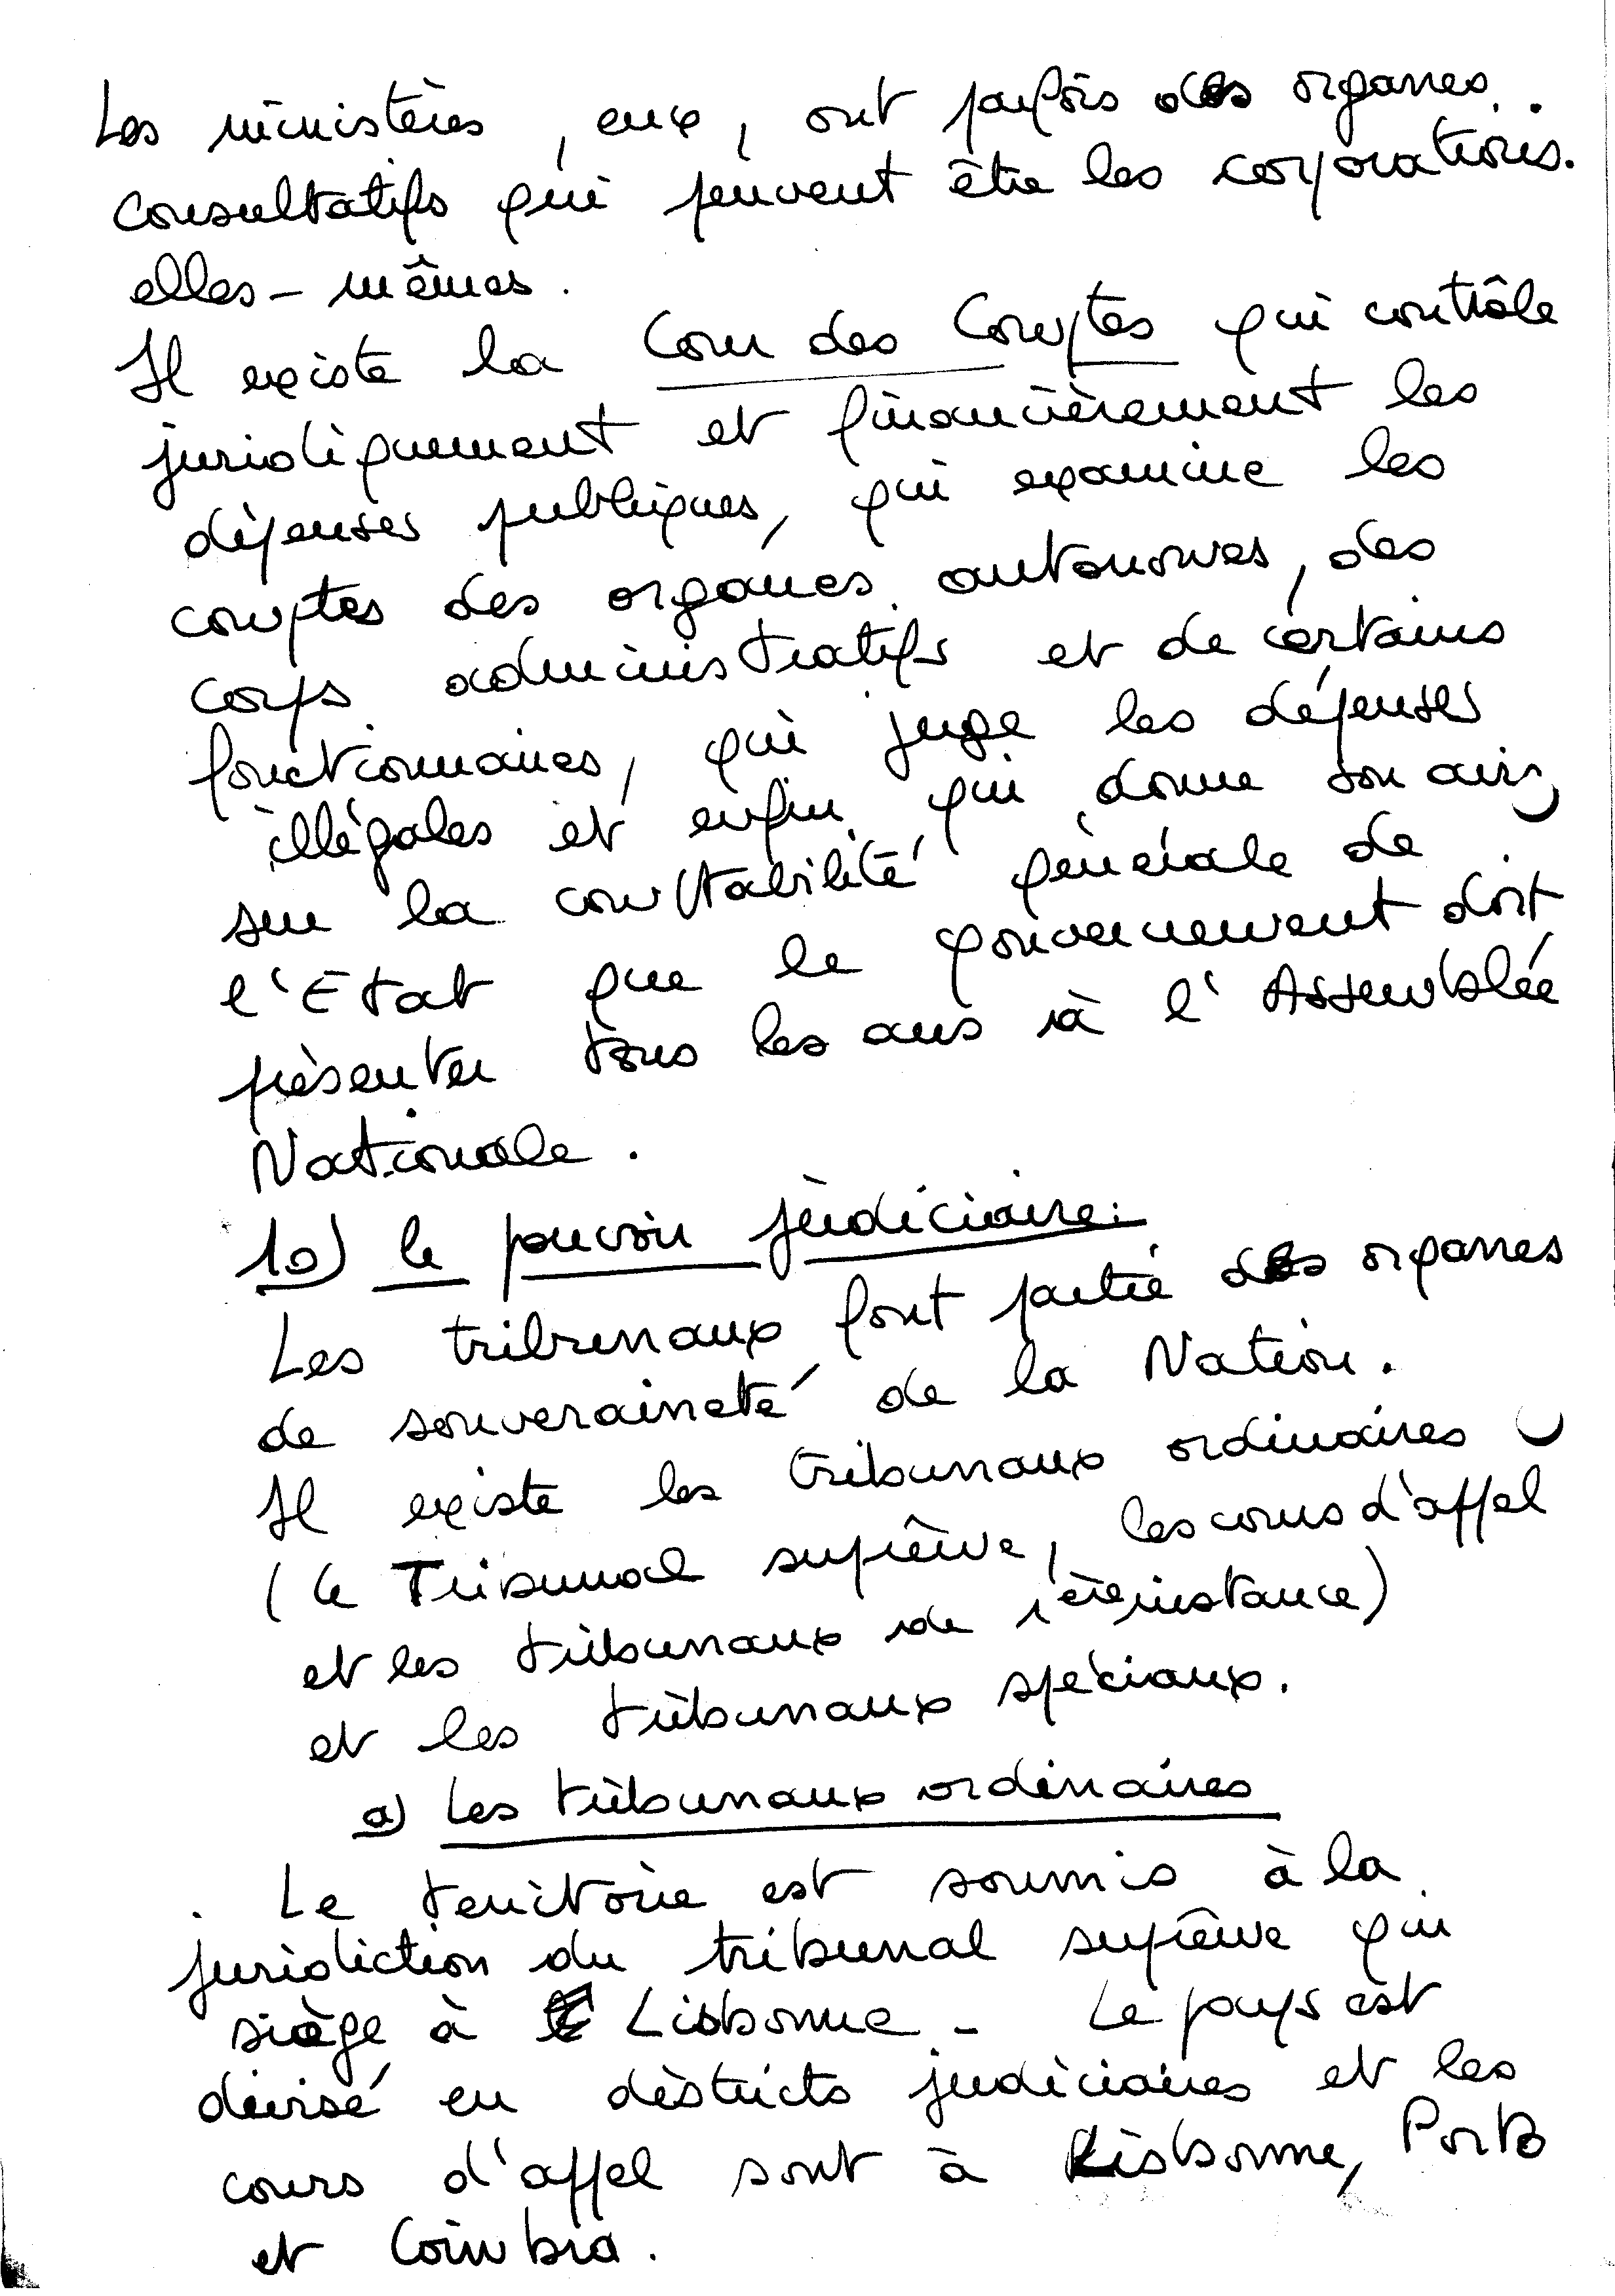 Les ministères, eux, ont parfois des organes
consultatifs qui peuvent être les corporations.
elles-mêmes.
Il existe la Cour des Comptes qui contrôle
juridiquement et financièrement les
dépenses publiques, qui examine les
comptes des organes autonomes, des
corps administratifs et de certains
fonctionnaires, qui juge les dépenses
illégales et enfin qui donne son avis
sur la comptabilité générale de
l'Etat que le gouvernement doit
présenter tous les ans à l'Assemblée
Nationale.
10) le pouvoir judiciaire:
Les tribunaux font partie des organes
de souveraineté de la Nation.
Il existe les tribunaux ordinaires
(le Tribunal suprême, les cours d'appel
et les tribunaux de 1ère instance)
et les tribunaux spéciaux.
a) Les tribunaux ordinaires
Le territoire est soumis à la
juridiction du tribunal suprême qui
siège à Lisbonne - Le pays est
divisé en districts judiciaires et les
cours d'appel sont à Lisbonne, Porto
et Coimbra.